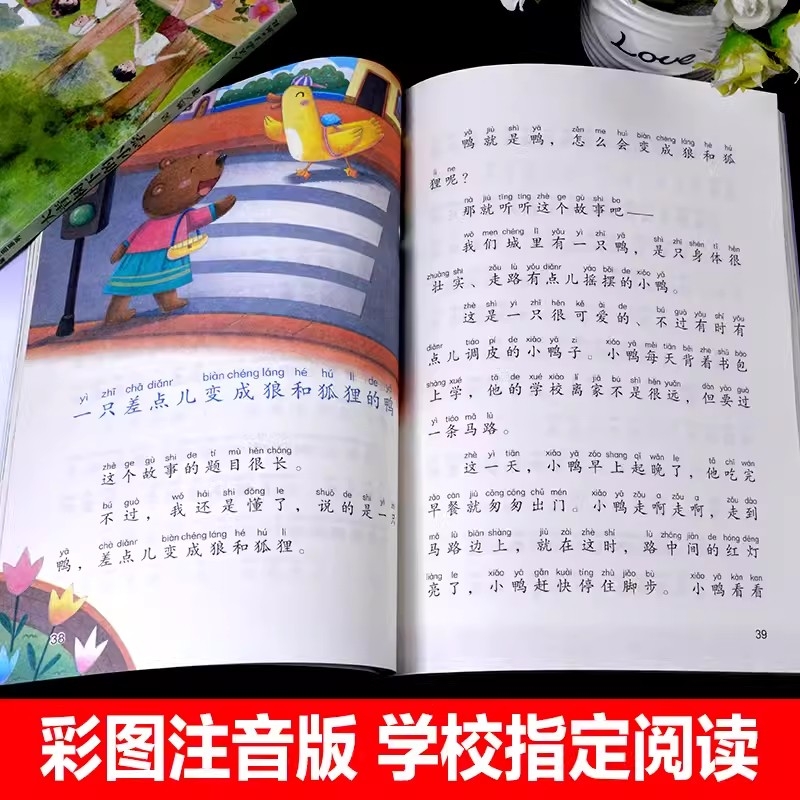 Love
yì zhī chà diǎnr biàn chéng láng hé hú li de yā
一只差点儿变成狼和狐狸的鸭
zhè ge gù shi de tí mù hěn cháng
这个故事的题目很长。
bú guò wǒ hái shi dǒng le shuō de shì yì
不过，我还是懂了，说的是一只
yā chà diǎnr biàn chéng láng hé hú li
鸭，差点儿变成狼和狐狸。
38
yā jiù shì yā zěn me huì biàn chéng láng hé hú
鸭就是鸭，怎么会变成狼和狐
li ne
狸呢？
nà jiù tīng ting zhè ge gù shi ba
那就听听这个故事吧——
wǒ men chéng lǐ yǒu yì zhī yā shì zhī shēn tǐ hěn
我们城里有一只鸭，是只身体很
zhuàng shi zǒu lù yǒu diǎnr yáo bǎi de xiǎo yā
壮实、走路有点儿摇摆的小鸭。
zhè shì yì zhī hěn kě ài de bú guò yǒu shí yǒu
这是一只很可爱的、不过有时有
diǎnr tiáo pí de xiǎo yā zi xiǎo yā měi tiān bēi zhe shū bāo
点儿调皮的小鸭子。小鸭每天背着书包
shàng xué tā de xué xiào lí jiā bú shì hěn yuǎn dàn yào guò
上学，他的学校离家不是很远，但要过
yì tiáo mǎ lù
一条马路。
zhè yì tiān xiǎo yā zǎo shang qǐ wǎn le tā chī wán
这一天，小鸭早上起晚了，他吃完
zǎo cān jiù cōng cōng chū mén xiǎo yā zǒu a zǒu a zǒu dào
早餐就匆匆出门。小鸭走啊走啊，走到
mǎ lù biān shàng jiù zài zhè shí lù zhōng jiān de hóng dēng
马路边上，就在这时，路中间的红灯
liàng le xiǎo yā gǎn kuài tíng zhù jiǎo bù xiǎo yā kàn kan
亮了，小鸭赶快停住脚步。小鸭看看
39
彩图注音版 学校指定阅读